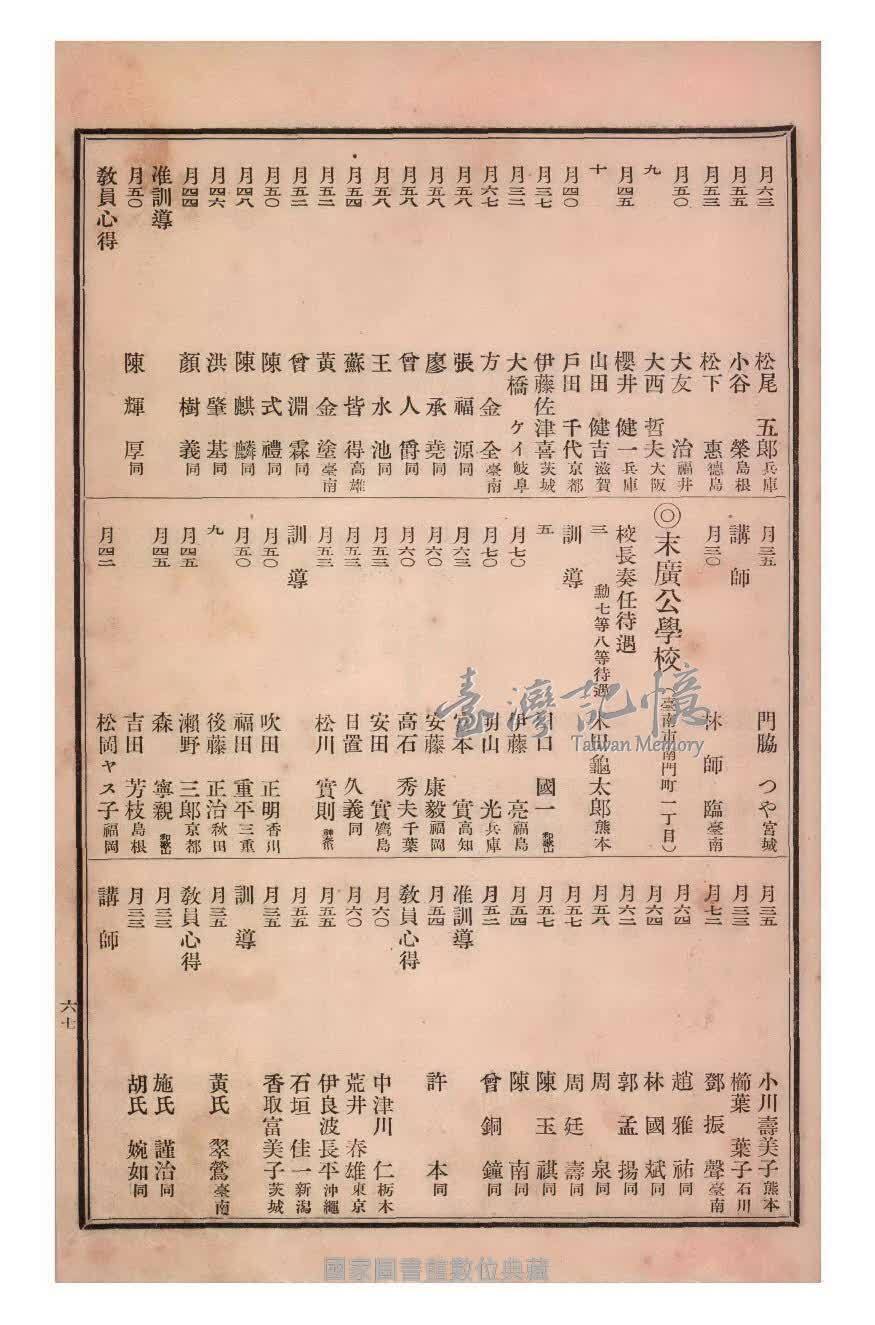 月六三 松尾 五郎 兵庫
月五五 小谷 榮 島根
月五三 松下 惠 德島
月五〇 大友 治 福井
九 大西 哲夫 大阪
月四五 櫻井 健一 兵庫
十 山田 健吉 滋賀
月四〇 戶田 千代 京都
月三七 伊藤佐津喜 茨城
月三二 大橋 ケイ 岐阜
月六七 方金全 臺南
月五八 張福源 同
月五八 廖承堯 同
月五八 曾人爵 同
月五八 王水池 同
月五四 蘇皆得 高雄
月五二 黃金塗 臺南
月五二 曾淵霖 同
月五〇 陳式禮 同
月四八 陳麒麟 同
月四六 洪肇基 同
月四四 顏樹義 同
准訓導
月五〇 陳輝厚 同
敎員心得
月三五 門脇 つや 宮城
講師
月三〇 林師臨 臺南
◎末廣公學校(臺南市南門町一丁目)
校長奏任待遇
三 勳七等八等待遇 木田龜太郎 熊本
訓導
五 川口 國一 和歌山
月七〇 伊藤 亮 福島
月七〇 明山 光 兵庫
月六三 宮本 實 高知
月六〇 安藤 康毅 福岡
月六〇 高石 秀夫 千葉
月五三 安田 實 廣島
月五三 日置 久義 同
月五三 松川 實則 神奈川
訓導
月五〇 吹田 正明 香川
月五〇 福田 重平 三重
九 後藤 正治 秋田
月四五 瀨野 三郎 京都
月四五 森 寧親 和歌山
吉田 芳枝 島根
月四二 松岡ヤス子 福岡
月三五 小川壽美子 熊本
月三三 櫛葉 葉子 石川
月七二 鄧振聲 臺南
月六四 趙雅祐 同
月六四 林國斌 同
月六二 郭孟揚 同
月五八 周泉 同
月五七 周廷壽 同
月五七 陳玉祺 同
月五四 陳南 同
月五二 曾銅鐘 同
准訓導
月五四 許本 同
敎員心得
月六〇 中津川 仁 栃木
月六〇 荒井 春雄 東京
月五五 伊良波長平 沖繩
月五五 石垣 佳一 新潟
月三五 香取富美子 茨城
訓導
月三五 黃氏 翠鶯 臺南
敎員心得
月三三 施氏 謹治 同
月三三 胡氏 婉如 同
講師
六七
臺灣記憶
Taiwan Memory
國家圖書館數位典藏